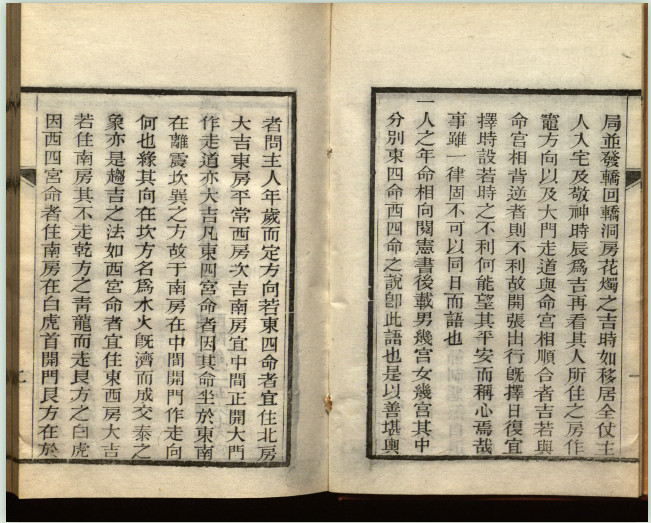 局並發轎回轎洞房花燭之吉時如移居全仗主
人入宅及敬神時辰爲吉再看其人所住之房作
竈方向以及大門走道與命宮相順合者吉若與
命宮相背逆者則不利故開張出行旣擇日復宜
擇時設若時之不利何能望其平安而稱心焉哉
事雖一律固不可以同日而語也
一人之年命相向閱憲書後載男幾宮女幾宮其中
分別東四命西四命之說卽此語也是以善堪輿
者問主人年歲而定方向若東四命者宜住北房
大吉東房平常西房次吉南房宜中間正開大門
作走道亦大吉凡東四宮命者因其命坐於東南
在離震坎巽之方故于南房在中間開門作走向
何也緣其向在坎方名爲水火旣濟而成交泰之
象亦是趨吉之法如西宮命者宜住東西房大吉
若住南房其不走乾方之靑龍而走艮方之白虎
因西四宮命者住南房在白虎首開門艮方在於